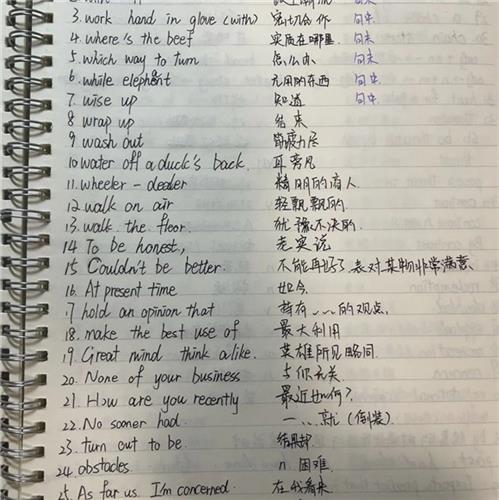 3. work hand in glove (with) 密切合作 句中
4. where's the beef 实质在哪里. 句末
5. which way to turn 怎么办 句末
6. while elephant 无用的东西 句中.
7. wise up 知道 句中.
8 wrap up 结束
9 wash out 筋疲力尽
10 water off a duck's back. 耳旁风
11. wheeler - dealer 精明的商人
12 walk on air 轻飘飘的.
13. walk the floor. 犹豫不决的.
14 To be honest, 老实说
15 Couldn't be better. 不能再好了, 表对某物非常满意.
16. At present time 如今.
17 hold an opinion that 持有...的观点.
18. make the best use of 最大利用
19. Great mind think alike. 英雄所见略同.
20. None of your business 与你无关.
21. How are you recently 最近如何?
22. No sooner had 一...就(倒装)
23. turn out to be. 结果却
24. obstacles n. 困难.
25. As far us I'm concerned. 在我看来.